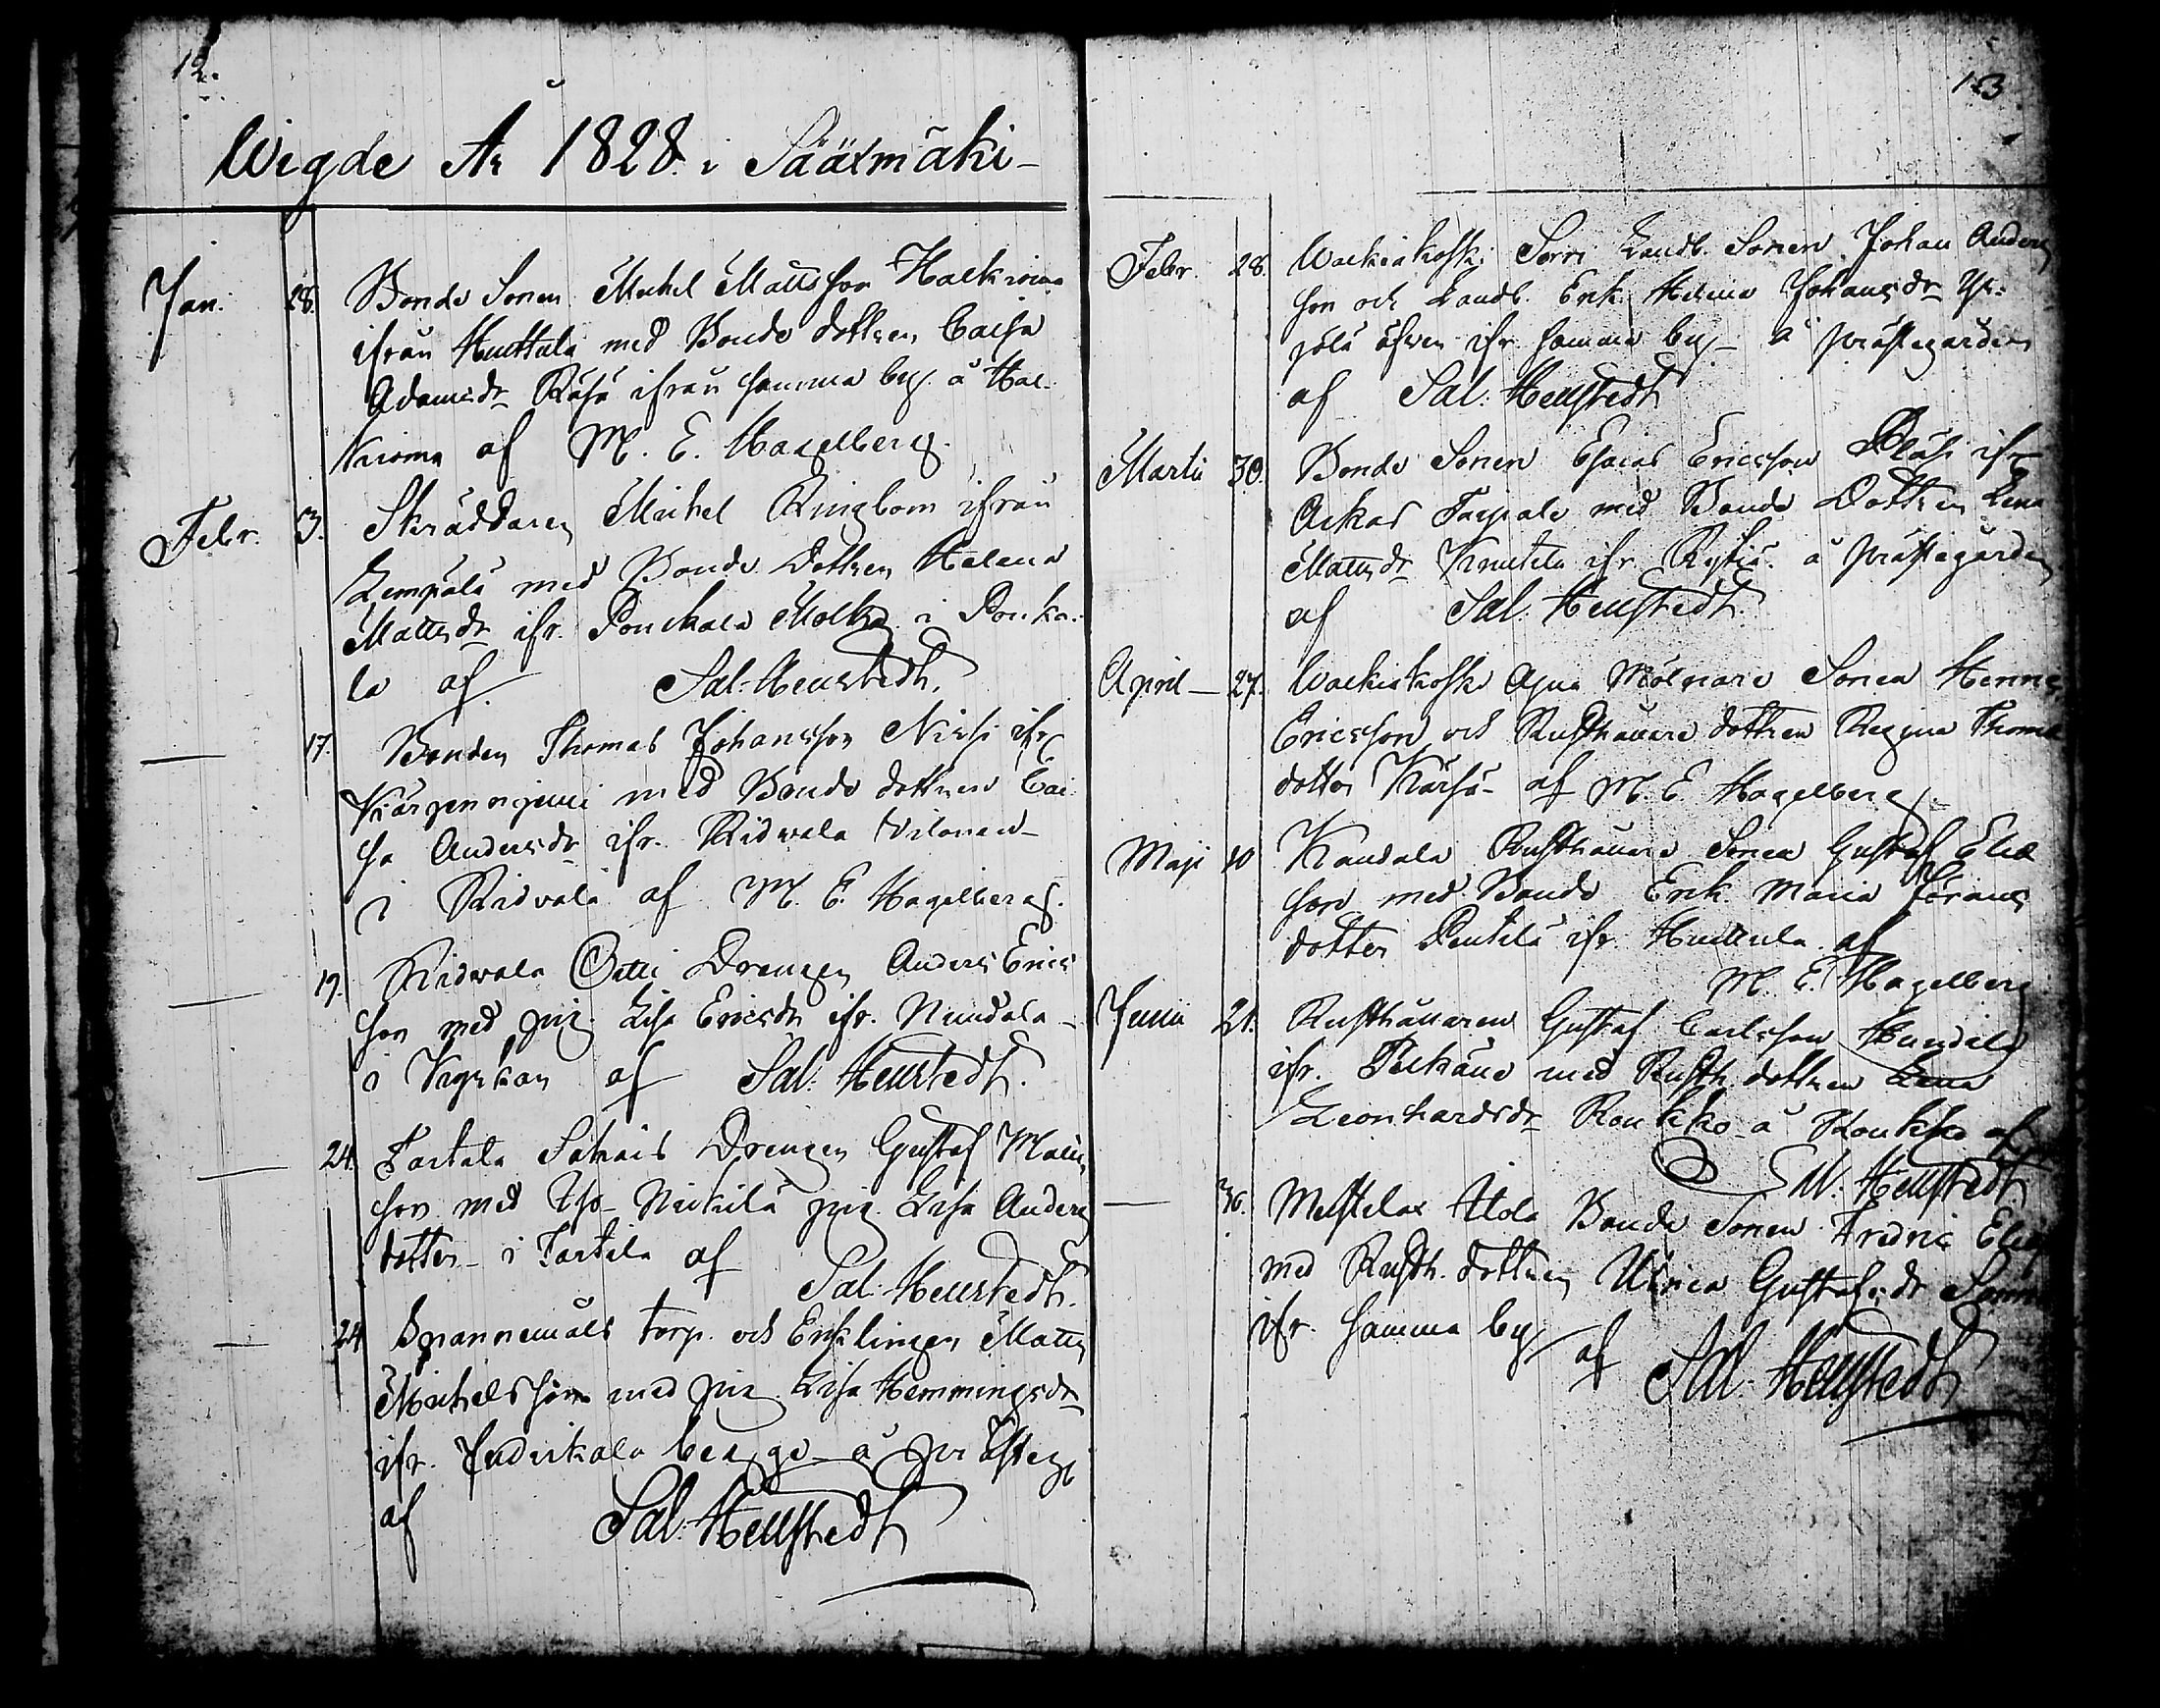 12.
Wigde År 1828. i Sääxmäki-
Jan. 28. Bonde Sonen Michel Mattsson Halkivina
ifrån Huittula med Bonde dottren Caisa
Adamsdr Räsä ifrån samma by. å Hal-
kivina af M. E. Hagelberg.
Febr. 3. Skräddaren Michel Ringbom ifrån
Lempälä med Bonde Dottren Helena
Mattsdr ifr. Pouckala i Pouka-
la af Sal. Hellstedt.
17. Bonden Thomas Johansson Nissi ifr
Kärgenniemi med Bonde dottren Cai-
sa Andersdr ifr. Ridvala Vilonen-
i Ridvala af M. E. Hagelberg.
19. Ridvala Ottu Drengen Anders Erics
son med pig. Lisa Ericsdr ifr. Nundala-
i af Sal. Hellstedt.
24. Tartala Drengen Gustaf Matts
son med Uso- Nickilä pig. Lisa Anders
dotter- i Tartila af
Sal. Hellstedt.
24 torp. och Enklingen Matts
Michelsson med pig. Lisa Hemmingsdr
ifr. å Prästeg
af Sal. Hellstedt
13
Febr. 28. Wackiakoski Sorri Landb. Sonen Johan Anders
son och Landb. Enk. Helena Johansdr Yr-
jölä äfven ifr. samma by- å prästegården
af Sal. Hellstedt
Martii 30. Bonde Sonen Esaias Ericsson ifr
Ackas Toijala med Bonde Dottren Lena
Mattsdr Knutila ifr. å prästegården
af Sal. Hellstedt.
April- 27. Wackiakoski Mölnare Sonen Hennes
Ericsson och Rusthållare dottren Regina Thomas
dotter Kärsä- af M. E. Hagelberg.
Maji 10 Kandala Rusthållare Sonen Gustaf Elias
son med Bonde Enk. Maria Jörans
dotter Pentilä ifr. Huittula. af
M. E. Hagelberg
Junii 21. Rusthållaren Gustaf Carlsson
ifr. Pelkäne med Rusth. dottren Lena
Leonhardsdr Roukko- å Roukko af
Sal. Hellstedt
30. Uola Bonde Sonen Fredric Elias
med Rusth. dottren Ulrica Gustafsdr
ifr. samma by af Sal. Hellstedt